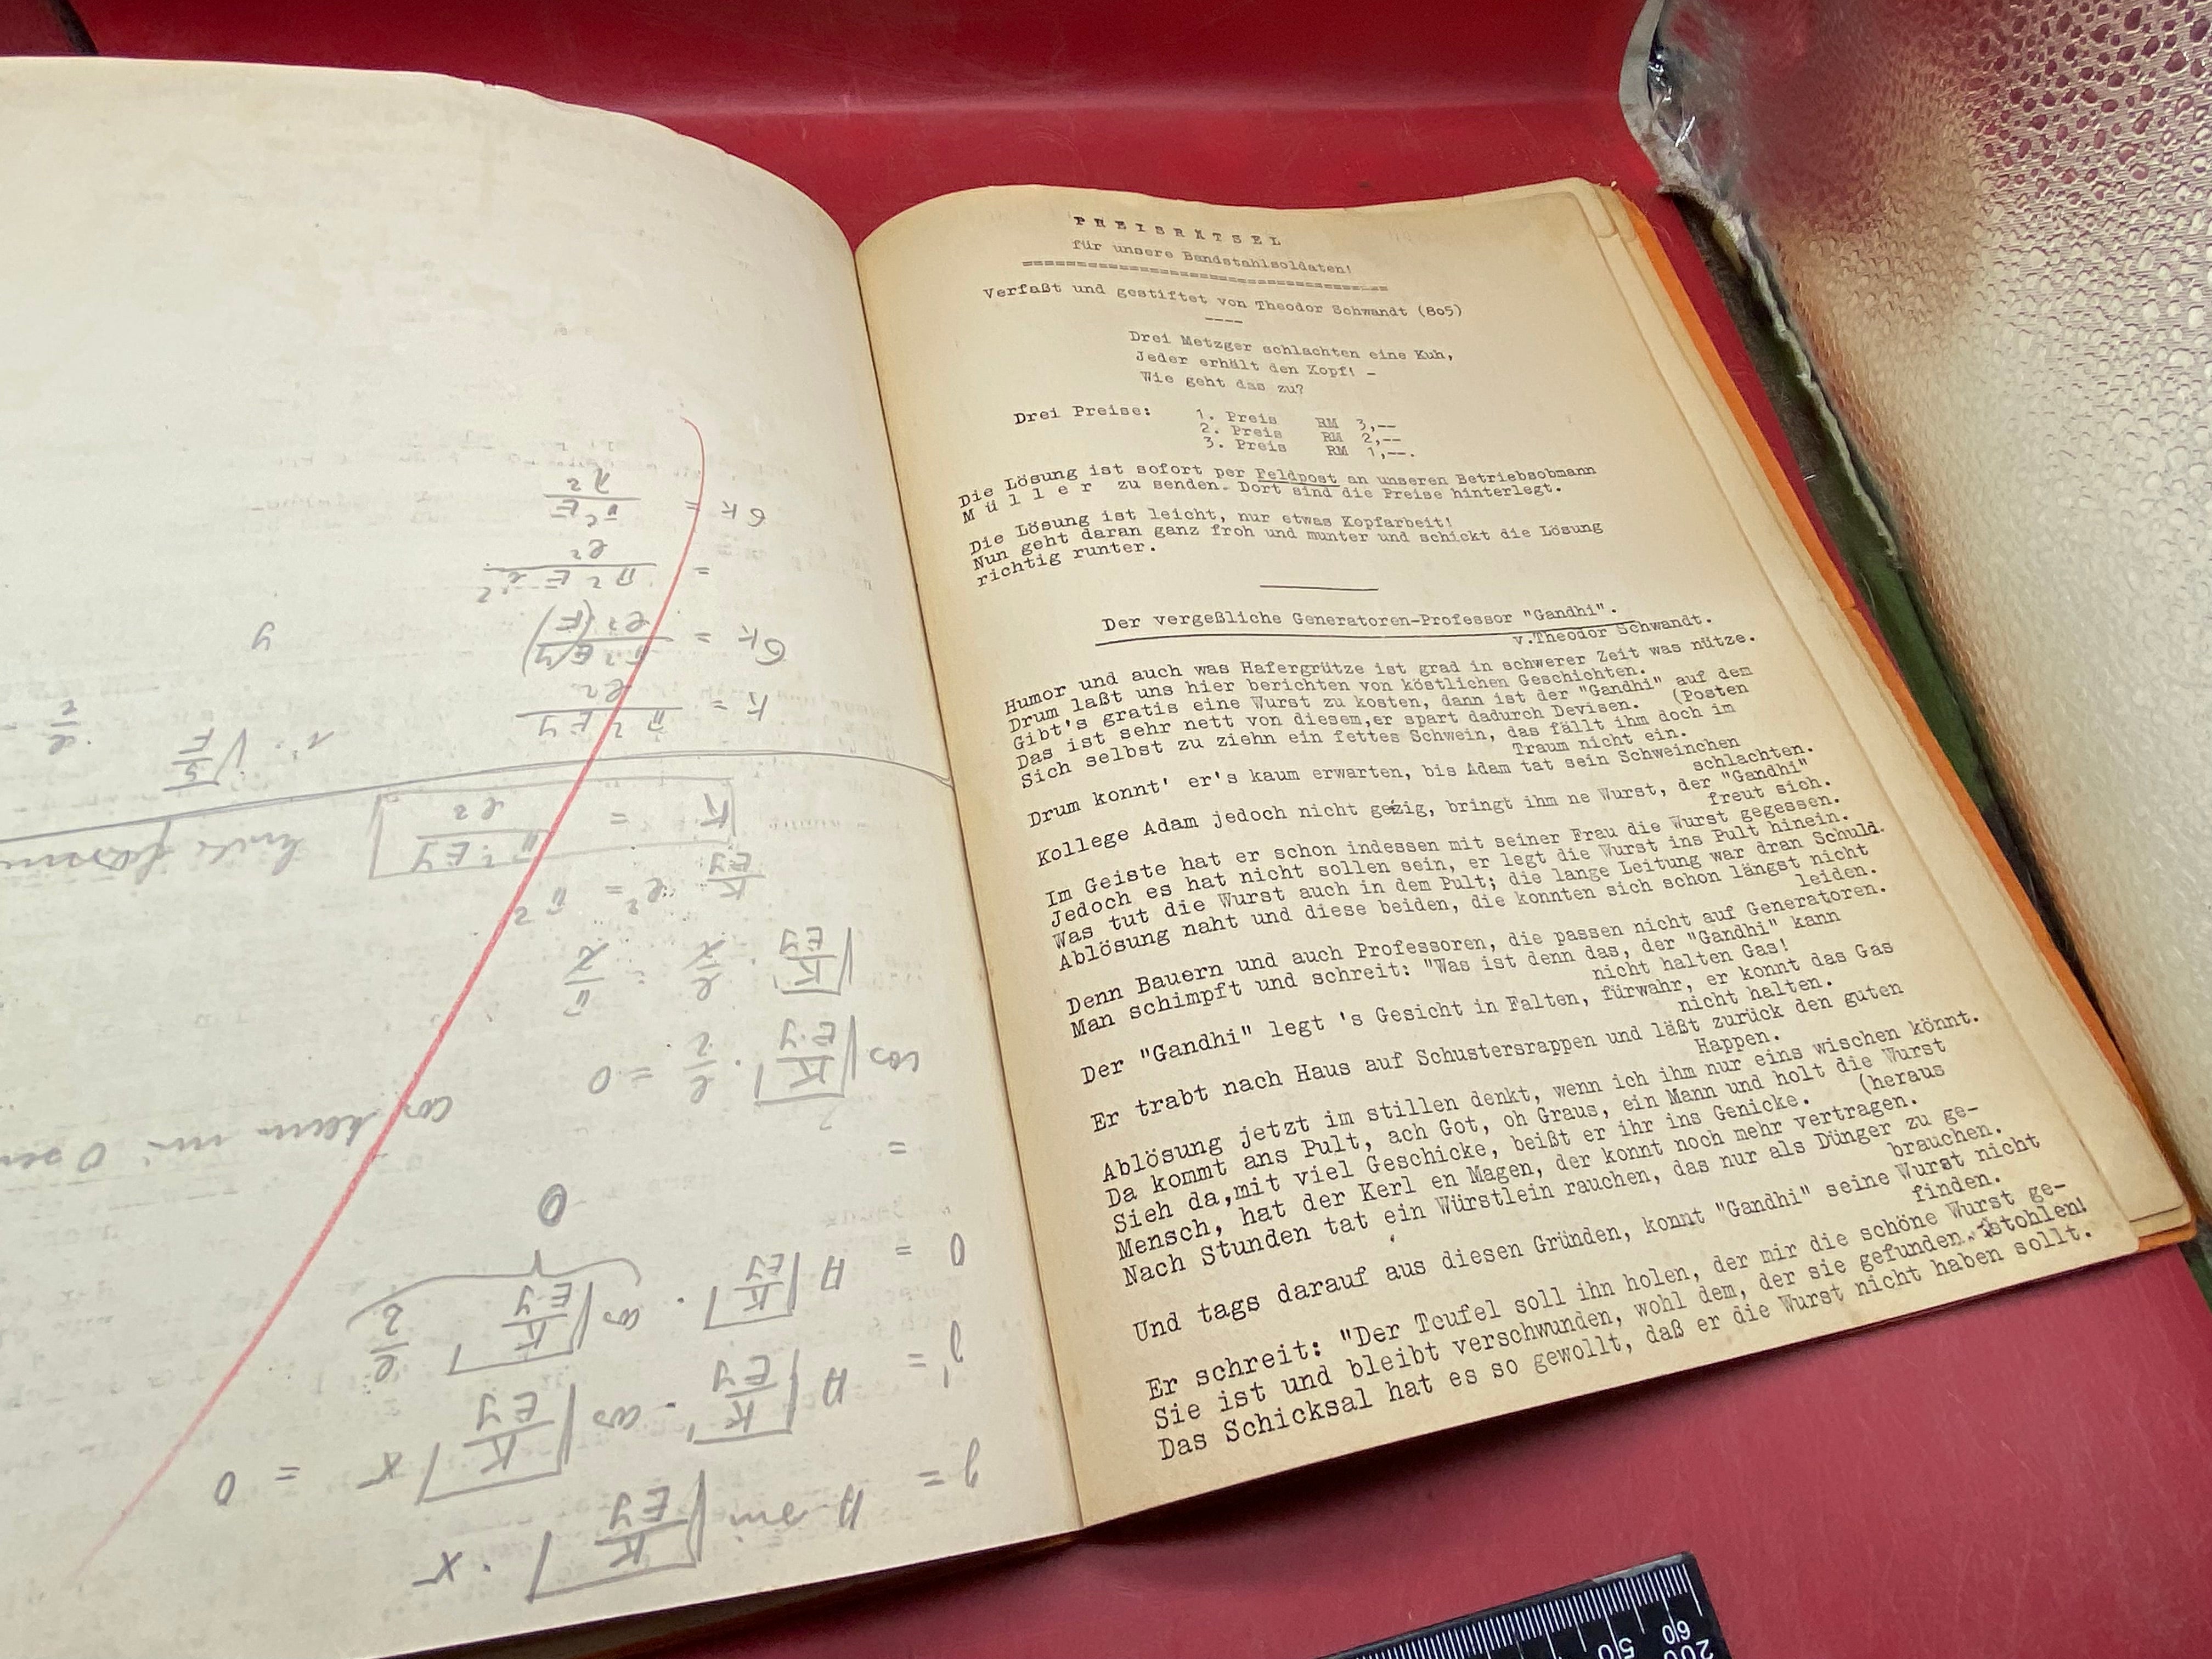 PREISRÄTSEL
für unsere Bandstahlsoldaten!
Verfaßt und gestiftet von Theodor Schwandt (805)
Drei Metzger schlachten eine Kuh,
Jeder erhält den Kopf! -
Wie geht das zu?
Drei Preise: 1. Preis RM 3,--
2. Preis RM 2,--
3. Preis RM 1,--.
Die Lösung ist sofort per Feldpost an unseren Betriebsobmann
M ü l l e r zu senden. Dort sind die Preise hinterlegt.
Die Lösung ist leicht, nur etwas Kopfarbeit!
Nun geht daran ganz froh und munter und schickt die Lösung
richtig runter.
Der vergeßliche Generatoren-Professor "Gandhi".
v.Theodor Schwandt.
Humor und auch was Hafergrütze ist grad in schwerer Zeit was nütze.
Drum laßt uns hier berichten von köstlichen Geschichten.
Gibt's gratis eine Wurst zu kosten, dann ist der "Gandhi" auf dem
(Posten
Das ist sehr nett von diesem,er spart dadurch Devisen.
Sich selbst zu ziehn ein fettes Schwein, das fällt ihm doch im
Traum nicht ein.
Drum konnt' er's kaum erwarten, bis Adam tat sein Schweinchen
schlachten.
Kollege Adam jedoch nicht geizig, bringt ihm ne Wurst, der "Gandhi"
freut sich.
Im Geiste hat er schon indessen mit seiner Frau die Wurst gegessen.
Jedoch es hat nicht sollen sein, er legt die Wurst ins Pult hinein.
Was tut die Wurst auch in dem Pult; die lange Leitung war dran Schuld.
Ablösung naht und diese beiden, die konnten sich schon längst nicht
leiden.
Denn Bauern und auch Professoren, die passen nicht auf Generatoren.
Man schimpft und schreit: "Was ist denn das, der "Gandhi" kann
nicht halten Gas!
Der "Gandhi" legt 's Gesicht in Falten, fürwahr, er konnt das Gas
nicht halten.
Er trabt nach Haus auf Schustersrappen und läßt zurück den guten
Happen.
Ablösung jetzt im stillen denkt, wenn ich ihm nur eins wischen könnt.
Da kommt ans Pult, ach Got, oh Graus, ein Mann und holt die Wurst
(heraus
Sieh da,mit viel Geschicke, beißt er ihr ins Genicke.
Mensch, hat der Kerl en Magen, der konnt noch mehr vertragen.
Nach Stunden tat ein Würstlein rauchen, das nur als Dünger zu ge-
brauchen.
Und tags darauf aus diesen Gründen, konnt "Gandhi" seine Wurst nicht
finden.
Er schreit: "Der Teufel soll ihn holen, der mir die schöne Wurst ge-
stohlen!
Sie ist und bleibt verschwunden, wohl dem, der sie gefunden.
Das Schicksal hat es so gewollt, daß er die Wurst nicht haben sollt.
y = A sin √(K/EY) · x
y' = A √(K/EY) · cos √(K/EY) x = 0
0 = A √(K/EY) · cos √(K/EY) l/2
0
=
cos √(K/EY) · l/2 = 0
cos kann nie 0
√(K/EY) · l/2 = π/2
K/EY l² = π²
K = π²EY/l²
K = π²EY/l²
=
50
60
200